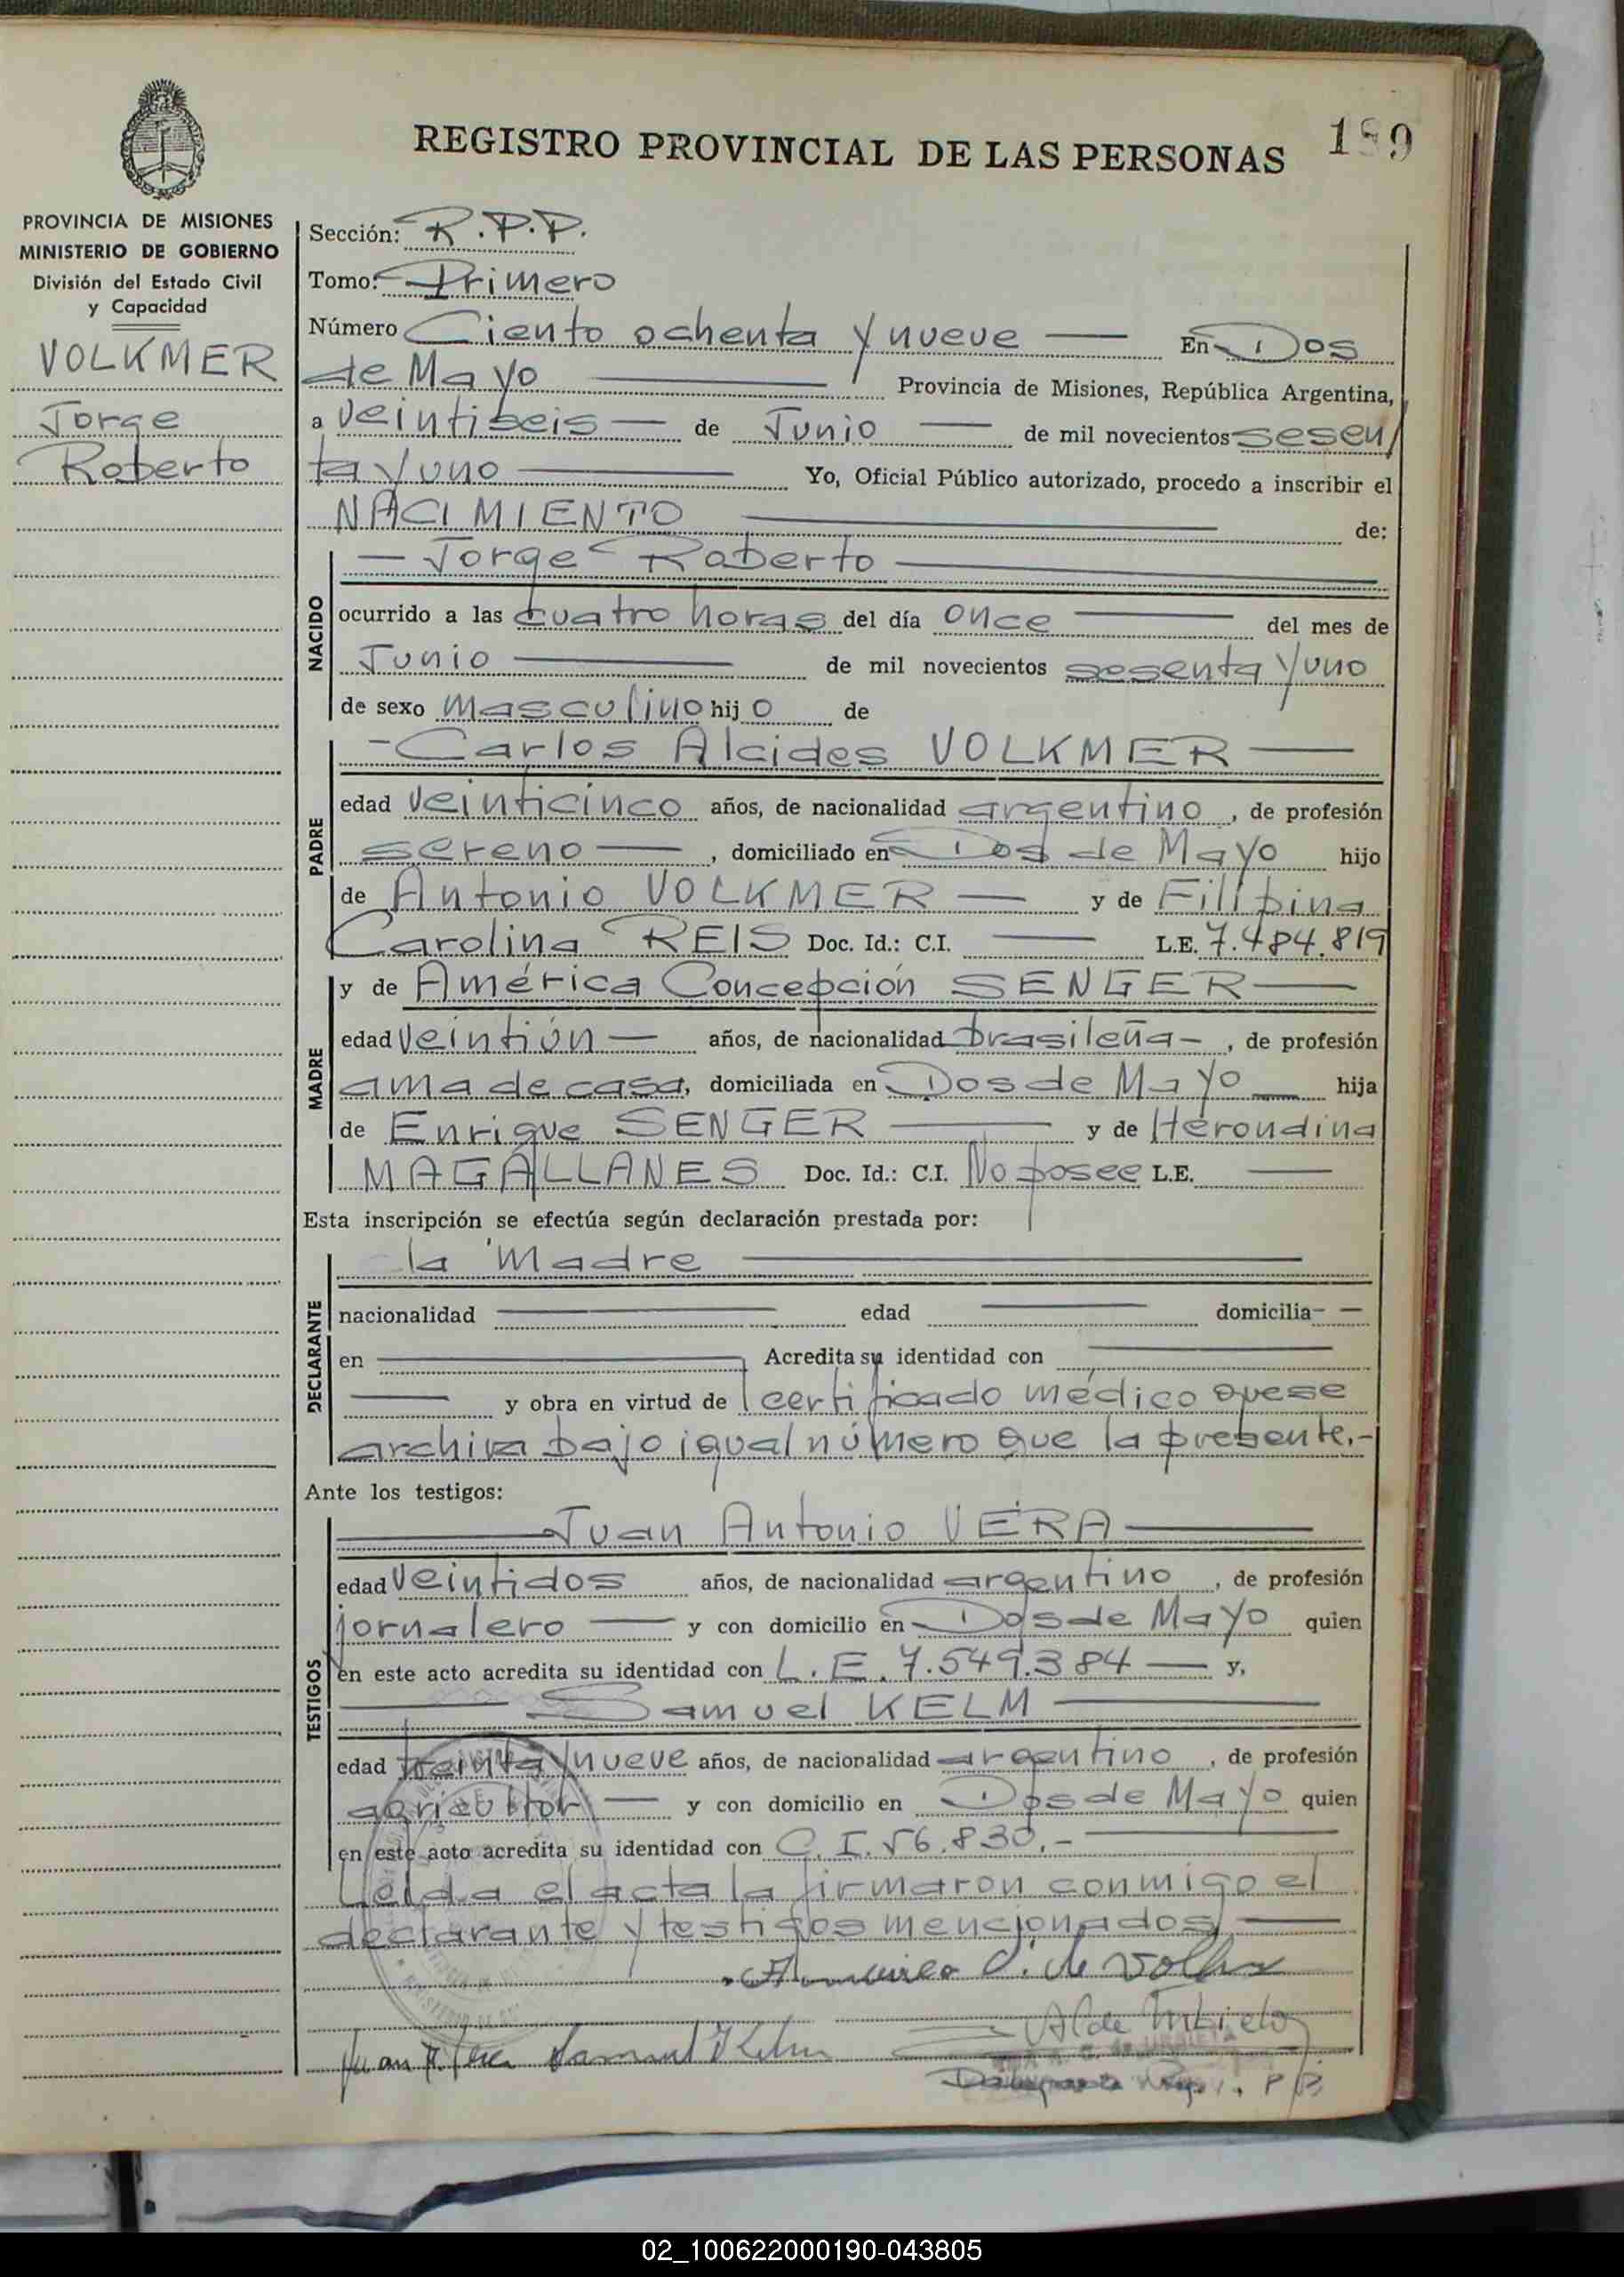 REGISTRO PROVINCIAL DE LAS PERSONAS 189
PROVINCIA DE MISIONES
MINISTERIO DE GOBIERNO
División del Estado Civil
y Capacidad
VOLKMER
Jorge
Roberto
Sección: R.P.P.
Tomo: Primero
Número Ciento ochenta y nueve — En Dos
de Mayo — Provincia de Misiones, República Argentina,
a veintiseis — de Junio — de mil novecientos sesen/
ta y uno — Yo, Oficial Público autorizado, procedo a inscribir el
NACIMIENTO — de:
NACIDO
— Jorge Roberto —
ocurrido a las cuatro horas del día once — del mes de
Junio — de mil novecientos sesenta y uno
de sexo masculino hij o de
PADRE
- Carlos Alcides VOLKMER —
edad veinticinco años, de nacionalidad argentino, de profesión
sereno —, domiciliado en Dos de Mayo hijo
de Antonio VOLKMER — y de Filipina
Carolina REIS Doc. Id.: C.I. — L.E. 7.484.819
MADRE
y de América Concepción SENGER —
edad veintiún — años, de nacionalidad brasileña -, de profesión
ama de casa, domiciliada en Dos de Mayo — hija
de Enrique SENGER — y de Herondina
MAGALLANES Doc. Id.: C.I. No posee L.E. —
Esta inscripción se efectúa según declaración prestada por:
DECLARANTE
la Madre —
nacionalidad — edad — domicilia- —
en — Acredita su identidad con —
— y obra en virtud de certificado médico que se
archiva bajo igual número que la presente.-
Ante los testigos:
TESTIGOS
— Juan Antonio VERA —
edad veintidos años, de nacionalidad argentino, de profesión
jornalero — y con domicilio en Dos de Mayo quien
en este acto acredita su identidad con L.E. 7.549.384 — y,
— Samuel KELM —
edad treinta y nueve años, de nacionalidad argentino, de profesión
agricultor — y con domicilio en Dos de Mayo quien
en este acto acredita su identidad con C.I. 56.830.- —
Leida el acta la firmaron conmigo el
declarante y testigos mencionados, —
Juan A. Vera Samuel Kelm
02_100622000190-043805